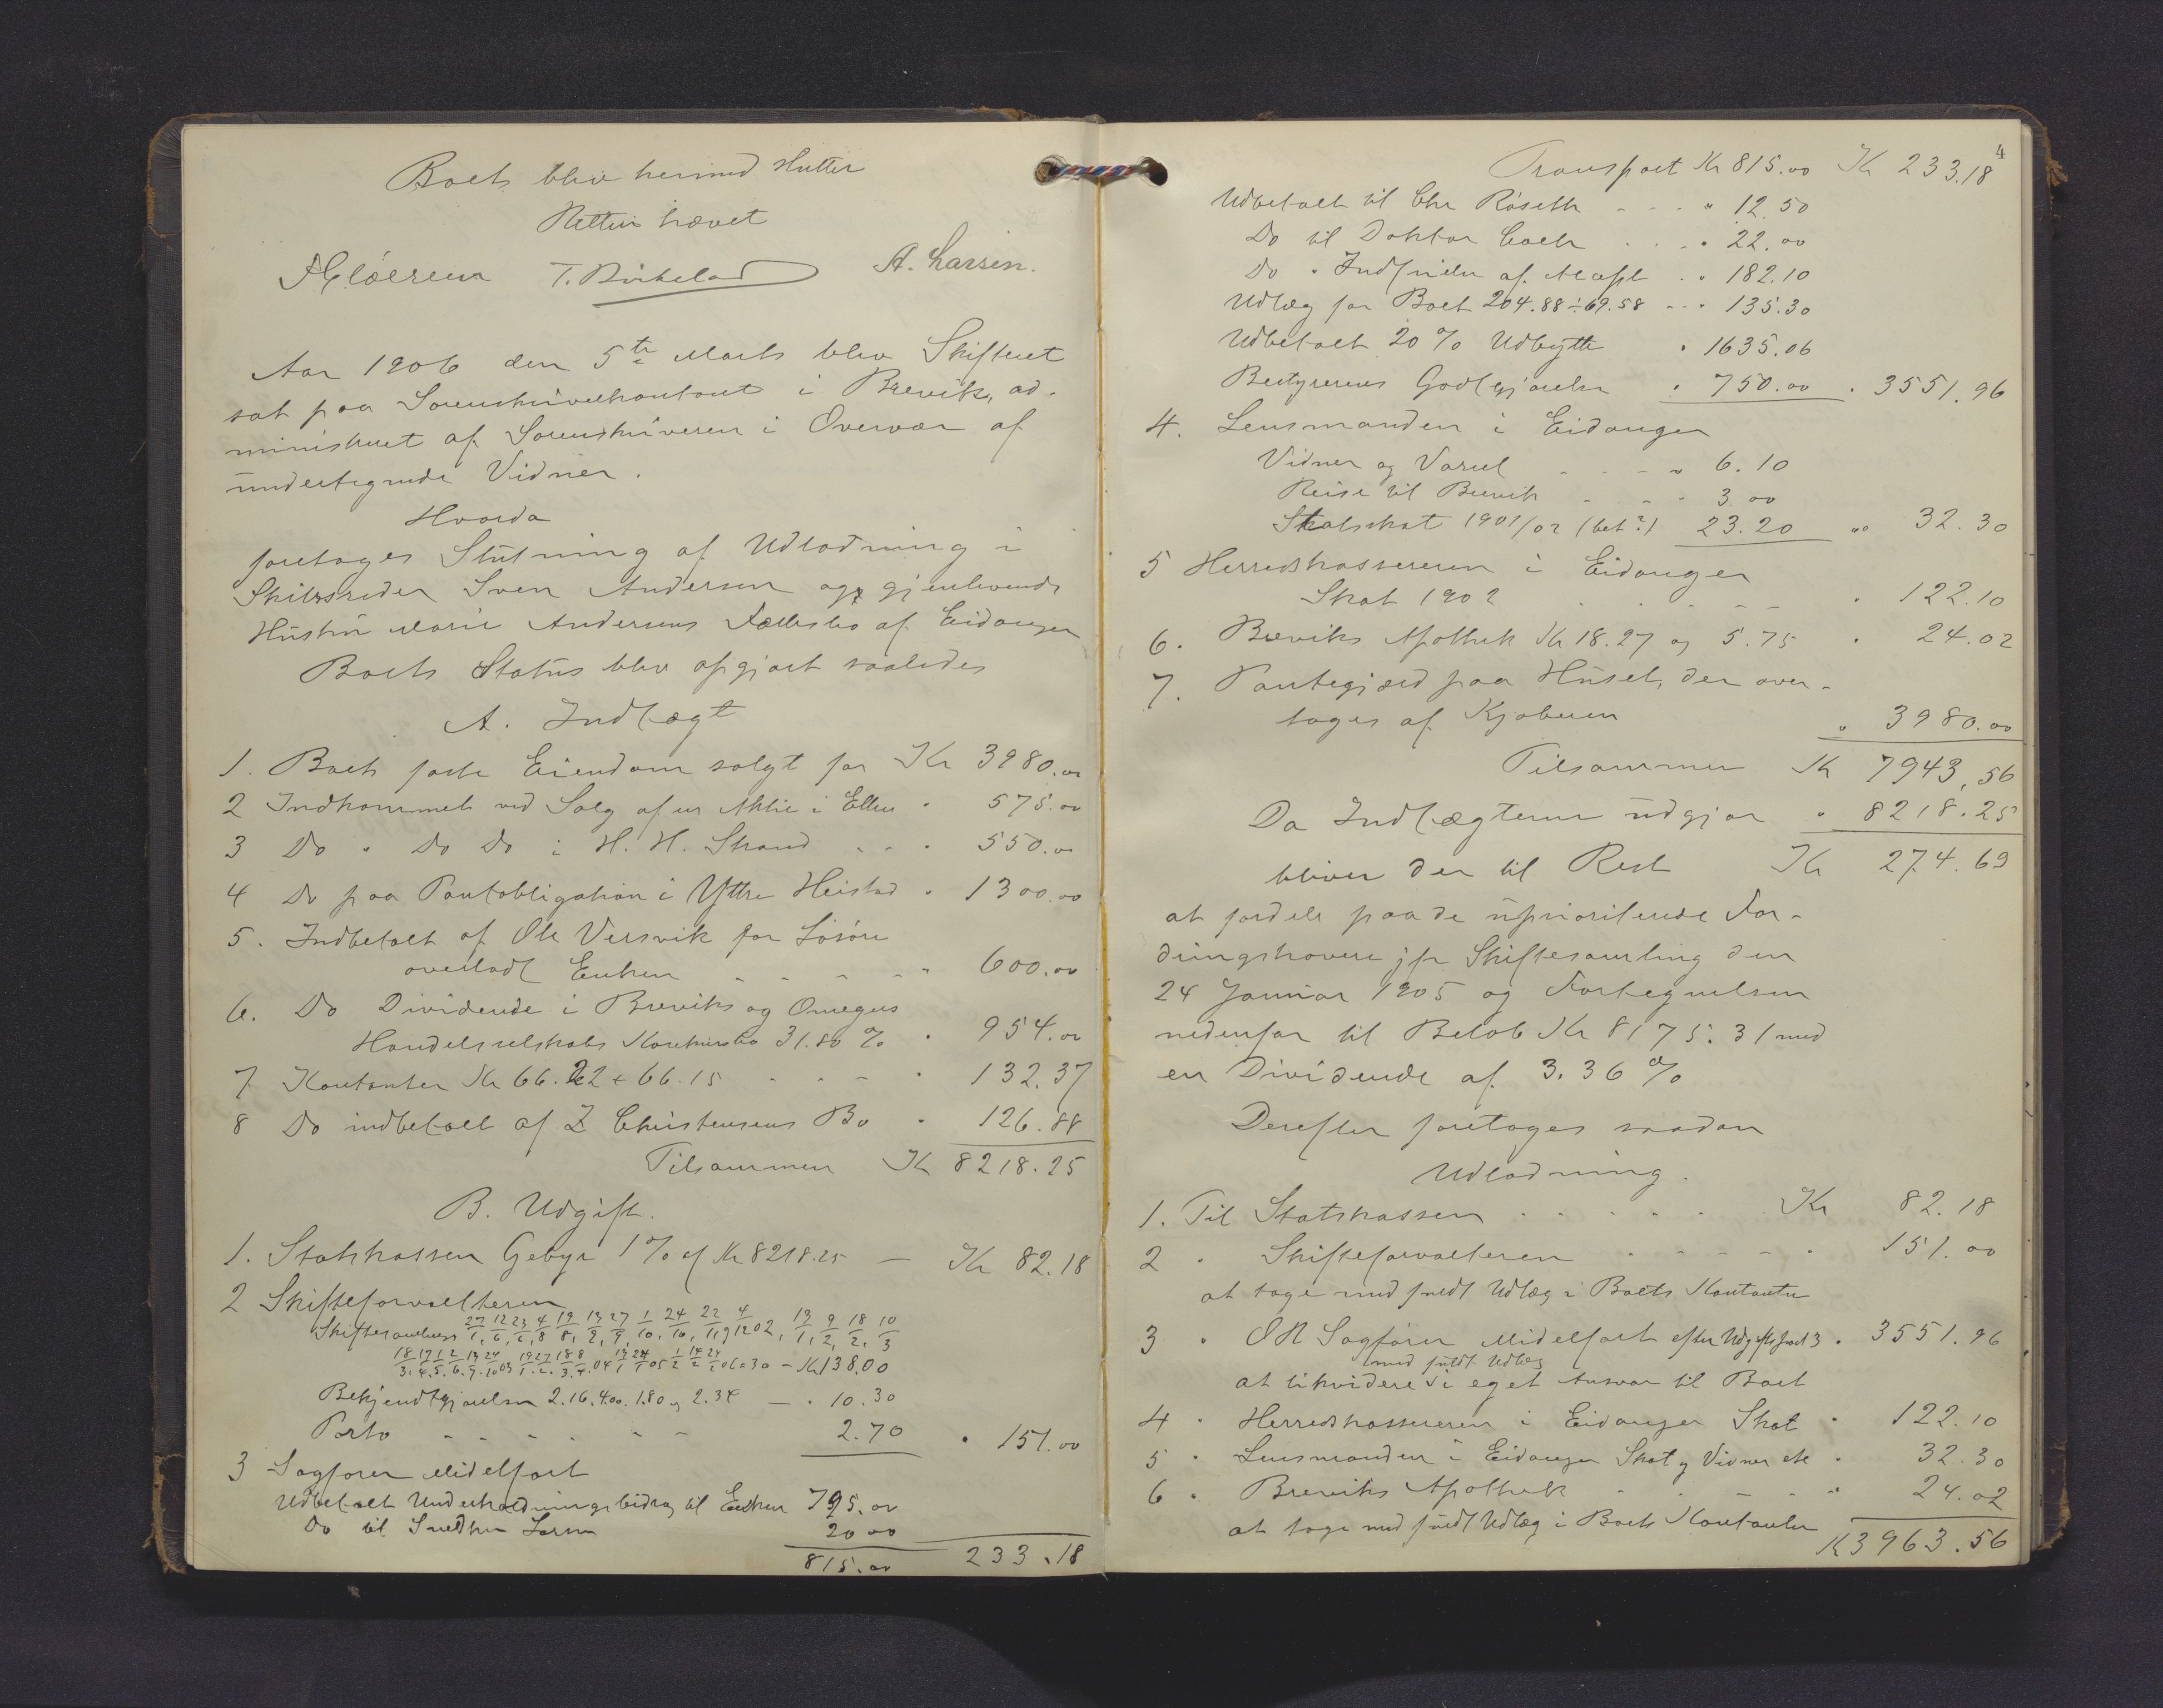 Boets blev hermed sluttet
Retten hævet
T. Birkeland A. Larsen.
Aar 1906 den 5te Marts blev Skifteret
sat paa Sorenskriverkontoret i Brevik, ad-
ministreret af Sorenskriveren i Overvær af
undertegnede Vidner.
Hvorda
foretoges Slutning af Udlodning i
Skibsreder Sven Andersen og gjenlevende
Hustru Marie Andersens Fællesbo af Eidanger
Boets Status blev opgjort saaledes
A. Indtægt
1. Boets faste Eiendom solgt for Kr 3980.00
2 Indkommet ved Salg af en Aktie i Ellen " 575.00
3 Do " Do Do i H. H. Strand - - " 550.00
4 Do paa Pantobligation i Yttre Heistad " 1300.00
5. Indbetalt af Ole Versvik for Løsøre
overladt Enken - - - - " 600.00
6. Do Dividende i Breviks og Omegns
Handelsselskabs Konkursbo 31.80 % " 954.00
7 Kontanter Kr 66.22 + 66.15 - - - " 132.37
8 Do indbetalt af Z Christensens Bo " 126.88
Tilsammen Kr 8218.25
B. Udgift.
1. Statskassen Gebyr 1 % af Kr 8218.25 — Kr 82.18
2 Skifteforvalteren
Skiftesamlinger 27/1, 12/6, 23/6, 4/8, 19/8, 13/9, 27/9, 1/10, 24/10, 22/11 og 4/12 02, 13/1, 9/2, 18/2, 10/3
18/3. 17/4. 1/5. 2/6. 13/7. 24/10 03 19/1. 27/2. 18/3. 8/4. 04 13/1 24/1 05 1/2 14/2 24/2 06 = 30 - Kr 138.00
Bekjendtgjørelser 2.16. 4.00. 1.80 og 2.34 — " 10.30
Porto - - - - - - 2.70 " 151.00
3 Sagfører Midelfart
Udbetalt Underholdningsbidrag til Enken 795.00
Do til Snedker Larsen 20 00
815.00 233.18
4
Transport Kr 815.00 Kr 233.18
Udbetalt til Chr Røseth - - - " 12.50
Do til Doktor Coch . . . " 22.00
Do " Indfrielse af Vexel . " 182.10
Udlæg for Boet 204.88 ÷ 69.58 - - " 135.30
Udbetalt 20 % Udbytte " 1635.06
Bestyrerens Godtgjørelse " 750.00 " 3551.96
4. Lensmanden i Eidanger
Vidner og Varsel - - - " 6.10
Reise til Brevik - - - " 3 00
Statsskat 1901/02 (bet?) 23.20 " 32.30
5 Herredskassereren i Eidanger
Skat 1902 . . . - - " 122.10
6. Breviks Apothek Kr 18.27 og 5.75 " 24.02
7. Pantegjæld paa Huset, der over-
tages af Kjøberen " 3980.00
Tilsammen Kr 7943.56
Da Indtægterne udgjør " 8218.25
bliver der til Rest Kr 274.69
at fordele paa de uprioriterede For-
dringshavere jfr Skiftesamling den
24 Januar 1905 og Fortegnelsen
nedenfor til Beløb Kr 8175.31 med
en Dividende af 3.36 %
Derefter foretoges saadan
Udlodning.
1. Til Statskassen . . . . . Kr 82.18
2 " Skifteforvalteren . . - - - " 151.00
at tage med fuldt Udlæg i Boets Kontanter
3 " O R Sagfører Midelfart efter Udgiftspost 3 " 3551.96
med fuldt Udlæg
at likvidere i eget Ansvar til Boet
4 " Herredskassereren i Eidanger Skat " 122.10
5 " Lensmanden i Eidanger Skat og Vidner etc " 32.30
6 " Breviks Apothek - - - - " 24.02
at tage med fuldt Udlæg i Boets Kontanter
Kr 3963.56